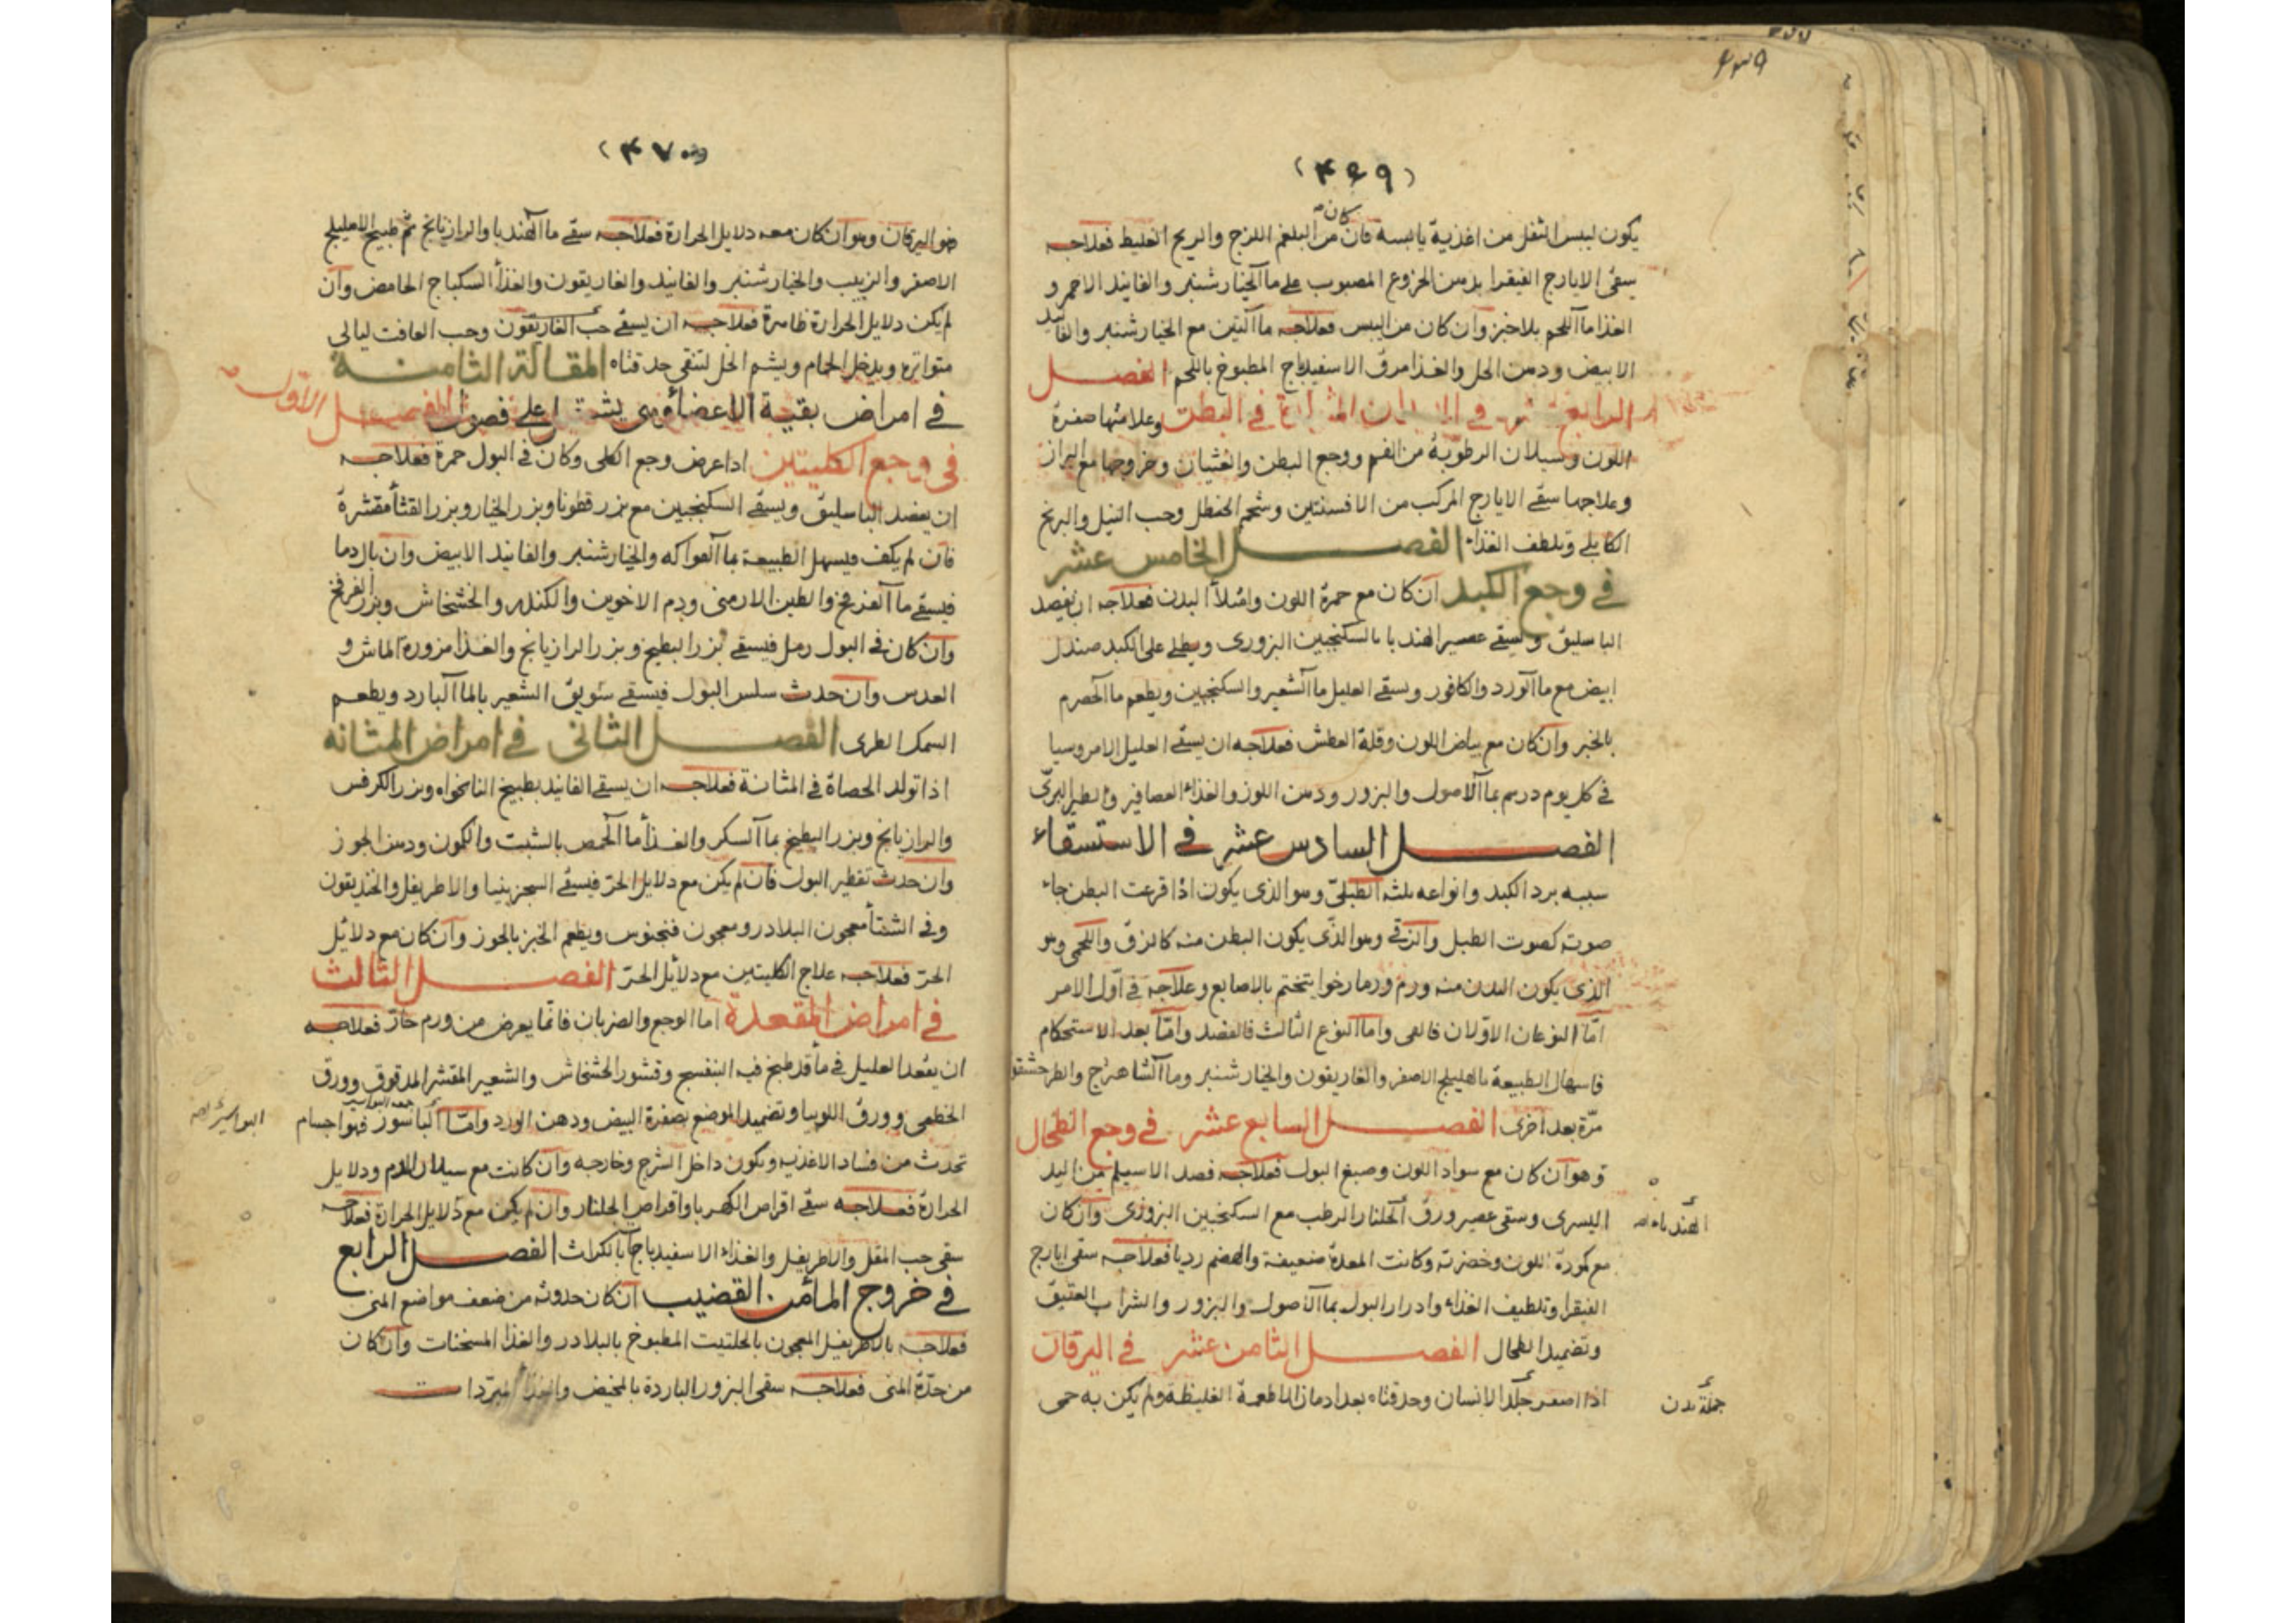 ۴۶۹
(۴۶۹)
كان
يكون ليبس الثفل من اغذية يابسة فان من البلغم اللزج والريح الغليظ فعلاجه
سقى الايارج الفيقرا بدهن الخروع المصبوب على ماء الخيار شنبر والفانيد الاحمر و
الغذا ماء اللحم بلا خبز وان كان من اليبس فعلاجه ماء التين مع الخيار شنبر والفانيد
الابيض ودهن الحل والغذا مرق الاسفيدباج المطبوخ باللحم الفصل
الرابع عشر في الديدان المتولدة في البطن وعلامتها صفرة
اللون وسيلان الرطوبة من الفم ووجع البطن والغثيان وخروجها مع البراز
وعلاجها سقى الايارج المركب من الافسنتين وشحم الحنظل وحب النيل والبرنج
الكابلي وتلطف الغذاء الفصل الخامس عشر
في وجع الكبد ان كان مع حمرة اللون وامتلأ البدن فعلاجه ان يفصد
الباسليق ويسقى عصير الهندبا بالسكنجبين البزورى ويطلى على الكبد صندل
ابيض مع ماء الورد والكافور ويسقى العليل ماء الشعير والسكنجبين ويطعم ماء الحصرم
بالخبز وان كان مع بياض اللون وقلة العطش فعلاجه ان يسقى العليل الامروسيا
في كل يوم درهم بماء الاصول والبزور ودهن اللوز والغذاء العصافير والطير البرى
الفصل السادس عشر في الاستسقاء
سببه برد الكبد وانواعه ثلثة الطبلى وهو الذى يكون اذا قرعت البطن جاء
صوته كصوت الطبل والزقى وهو الذى يكون البطن منه كالزق واللحمى وهو
الذى يكون البدن منه ورم ورما رخوا يتختم بالاصابع وعلاجه في اول الامر
اما النوعان الاولان فالقى واما النوع الثالث فالفصد واما بعد الاستحكام
فاسهال الطبيعة بالهليلج الاصفر والغاريقون والخيار شنبر وماء الشاهترج والطرخشقو
مرة بعد اخرى الفصل السابع عشر في وجع الطحال
وهو ان كان مع سواد اللون وصبغ البول فعلاجه فصد الاسيلم من اليد
اليسرى وسقى عصير ورق الخلنار الرطب مع السكنجبين البزورى وان كان
الهندباء
مع كمودة اللون وخضرته وكانت المعدة ضعيفة والهضم رديا فعلاجه سقى ايارج
الفيقرا وتلطيف الغذاء وادرار البول بماء الاصول والبزور والشراب العتيق
وتضميد الطحال الفصل الثامن عشر في اليرقان
اذا اصفر جلد الانسان وحدقتاه بعد ادمان الاطعمة الغليظة ولم يكن به حمى
جملة بدن
(۴۷۰)
فهو اليرقان وهو ان كان معه دلايل الحرارة فعلاجه سقى ماء الهندبا والرازيانج ثم طبيخ الاهليلج
الاصفر والزبيب والخيار شنبر والفانيد والغاريقون والغذأ السكباج الحامض وان
لم يكن دلايل الحرارة ظاهرة فعلاجه ان يسقى حب الغاريقون وحب العافت ليالى
متواتره ويدخل الحمام ويشم الخل لتنقى حدقتاه المقالة الثامنة
في امراض بقية الاعضأ وهى يشتمل على فصول الفصل الاول
في وجع الكليتين اذا عرض وجع الكلى وكان في البول حمرة فعلاجه
ان يفصد الباسليق ويسقى السكنجبين مع بزر قطونا وبزر الخيار وبزر القثأ مقشرة
فان لم يكف فيسهل الطبيعة بماء الفواكه والخيار شنبر والفانيد الابيض وان بال دما
فيسقى ماء الفرفخ والطين الارمنى ودم الاخوين والكندر والخشخاش وبزر الفرفخ
وان كان في البول رمل فيسقى بزر البطيخ وبزر الرازيانج والغذا مزورة الماش و
العدس وان حدث سلس البول فيسقى سويق الشعير بالماء البارد ويطعم
السمك الطرى الفصل الثانى في امراض المثانه
اذا تولد الحصاة في المثانة فعلاجه ان يسقى الفانيد بطبيخ النانخواه وبزر الكرفس
والرازيانج وبزر البطيخ بماء السكر والغذأ ماء الحمص بالشبت والكمون ودهن الجوز
وان حدث تقطير البول فان لم يكن مع دلايل الحر فيسقى السجزينيا والاطريفل والخنديقون
وفى الشتأ معجون البلادر ومعجون فنجنوس ويطعم الخبز بالجوز وان كان مع دلائل
الحر فعلاجه علاج الكليتين مع دلائل الحر الفصل الثالث
في امراض المقعدة اما الوجع والضربان فانما يعرض من ورم حار فعلاجه
ان يقعد العليل في مأ قد طبخ فيه البنفسج وقشور الخشخاش والشعير المقشر المدقوق وورق
الخطمى وورق اللوبيا وتضميد الموضع بصفرة البيض ودهن الورد واما الباسور فهو اجسام
البواسير
تحدث من فساد الاغذيه ويكون داخل الشرج وخارجه وان كانت مع سيلان الدم ودلايل
الحرارة فعلاجه سقى اقراص الكهربا واقراص الجلنار وان لم يكن مع دلايل الحرارة فعلاجه
سقى حب المقل والاطريفل والغذاء الاسفيدباجا بالكراث الفصل الرابع
في خروج الماء من القضيب ان كان حدوثه من ضعف مواضع المنى
فعلاجه بالاطريفل المعجون بالحلتيت المطبوخ بالبلادر والغذا المسخنات وان كان
من حدة المنى فعلاجه سقى البزور الباردة بالمخيض والغذا المبردات